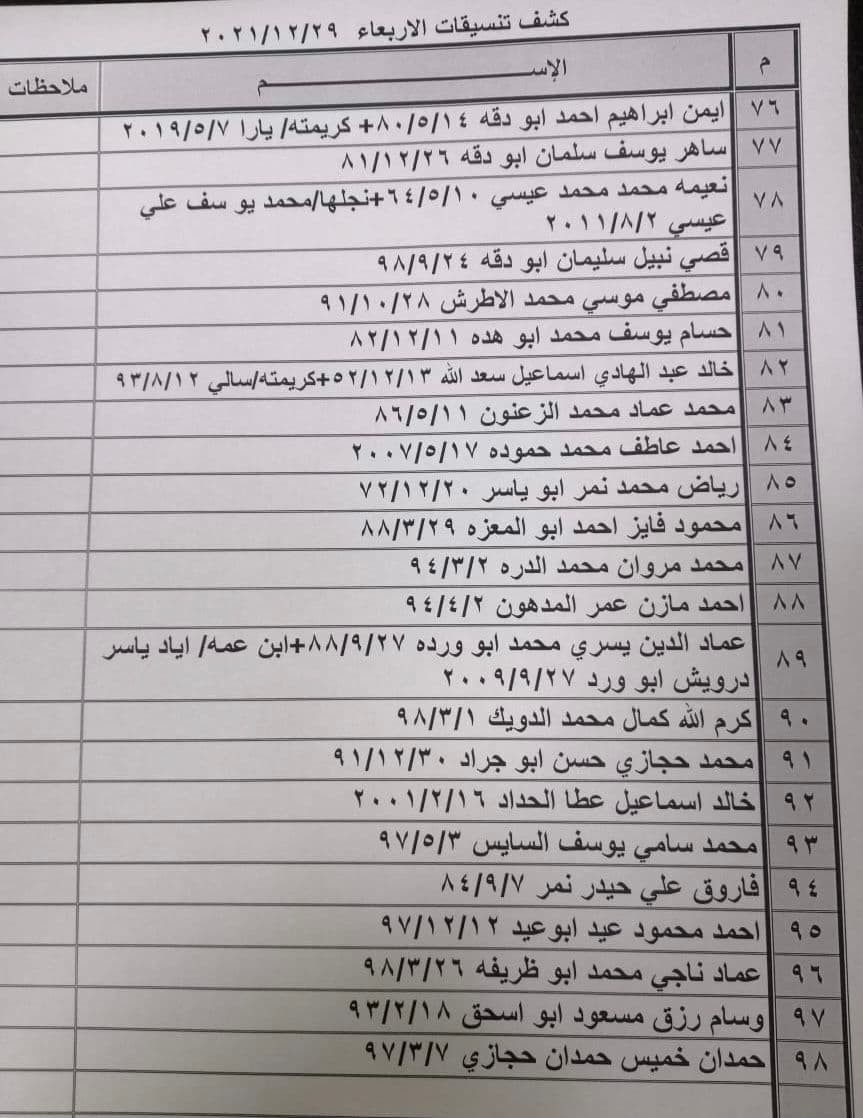 كشف تنسيقات الاربعاء ٢٠٢١/١٢/٢٩
م الإســـــــــم ملاحظات
٧٦ ايمن ابراهيم احمد ابو دقه ٨٠/٥/١٤+ كريمته/ يارا ٢٠١٩/٥/٧
٧٧ ساهر يوسف سلمان ابو دقه ٨١/١٢/٢٦
٧٨ نعيمه محمد محمد عيسي ٦٤/٥/١٠+نجلها/محمد يو سف علي
عيسي ٢٠١١/٨/٢
٧٩ قصي نبيل سليمان ابو دقه ٩٨/٩/٢٤
٨٠ مصطفي موسي محمد الاطرش ٩١/١٠/٢٨
٨١ حسام يوسف محمد ابو هده ٨٢/١٢/١١
٨٢ خالد عبد الهادي اسماعيل سعد الله ٥٢/١٢/١٣+كريمته/سالي ٩٣/٨/١٢
٨٣ محمد عماد محمد الزعنون ٨٦/٥/١١
٨٤ احمد عاطف محمد حموده ٢٠٠٧/٥/١٧
٨٥ رياض محمد نمر ابو ياسر ٧٢/١٢/٢٠
٨٦ محمود فايز احمد ابو المعزه ٨٨/٣/٢٩
٨٧ محمد مروان محمد الدره ٩٤/٣/٢
٨٨ احمد مازن عمر المدهون ٩٤/٤/٢
٨٩ عماد الدين يسري محمد ابو ورده ٨٨/٩/٢٧+ابن عمه/ اياد ياسر
درويش ابو ورد ٢٠٠٩/٩/٢٧
٩٠ كرم الله كمال محمد الدويك ٩٨/٣/١
٩١ محمد حجازي حسن ابو جراد ٩١/١٢/٣٠
٩٢ خالد اسماعيل عطا الحداد ٢٠٠١/٢/١٦
٩٣ محمد سامي يوسف السايس ٩٧/٥/٣
٩٤ فاروق علي حيدر نمر ٨٤/٩/٧
٩٥ احمد محمود عيد ابو عيد ٩٧/١٢/١٢
٩٦ عماد ناجي محمد ابو ظريفه ٩٨/٣/٢٦
٩٧ وسام رزق مسعود ابو اسحق ٩٣/٢/١٨
٩٨ حمدان خميس حمدان حجازي ٩٧/٣/٧